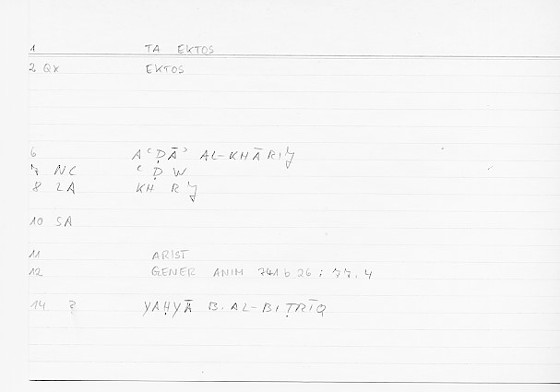 1 TA EKTOS
2 QX EKTOS
6 AʿḌĀʾ AL-KHĀRIJ
7 NC ʿḌW
8 LA KH RJ
10 SA
11 ARIST
12 GENER ANIM 741 b 26 ; 77.4
14 ? YAḤYĀ B. AL-BIṬRĪQ